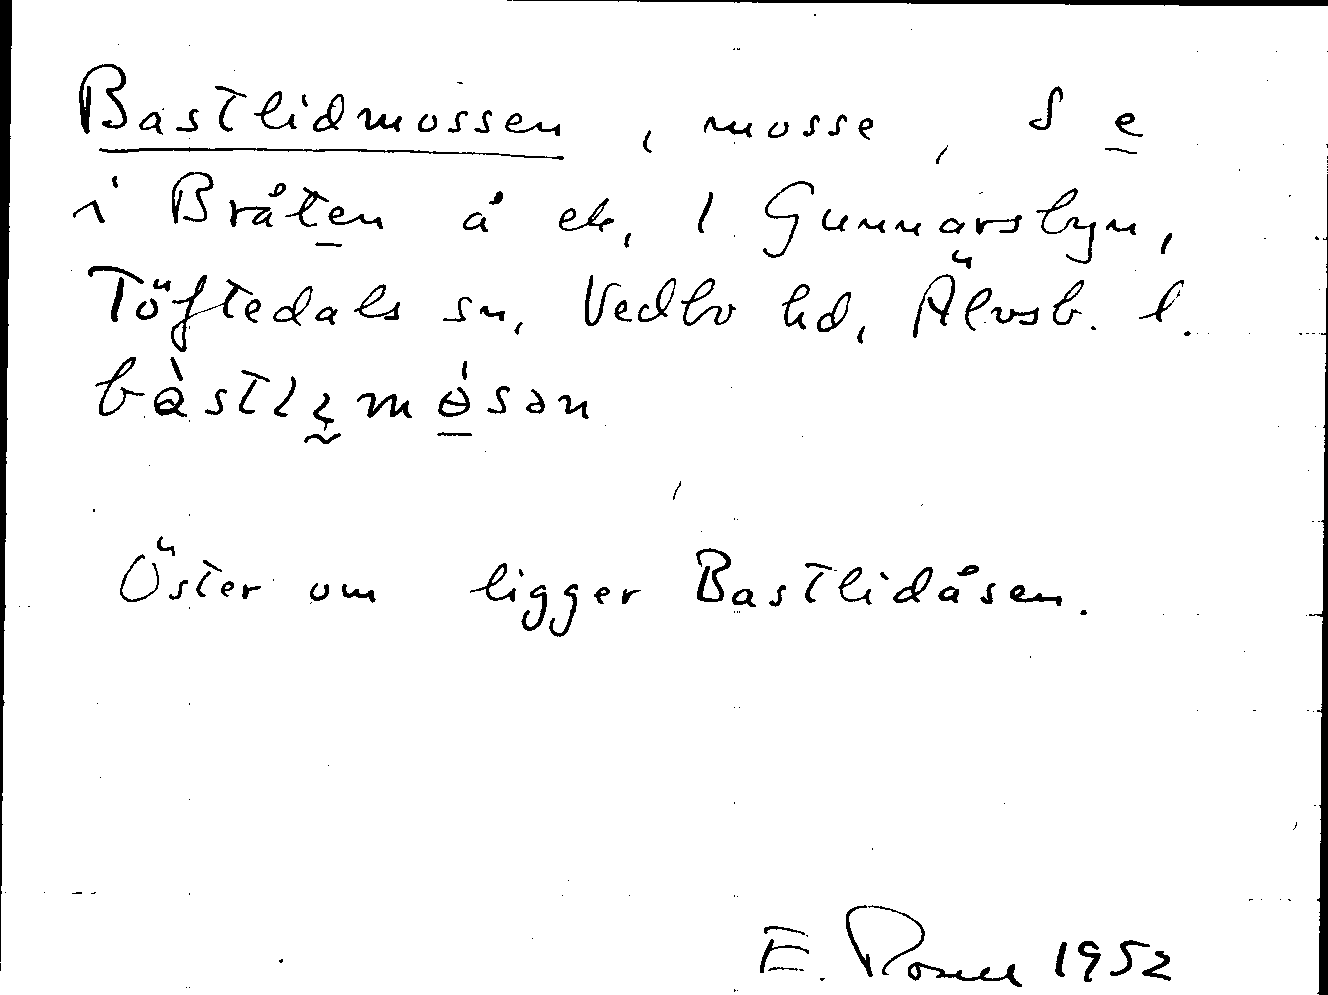 Bastlidmossen, mosse, S e
i Bråten å ek. 1 Gunnarsbyn,
Töftedals sn, Vedbo hd, Älvsb. l.
bàstlɩmɵ́sən
Öster om ligger Bastlidåsen.
E. Rosell 1952